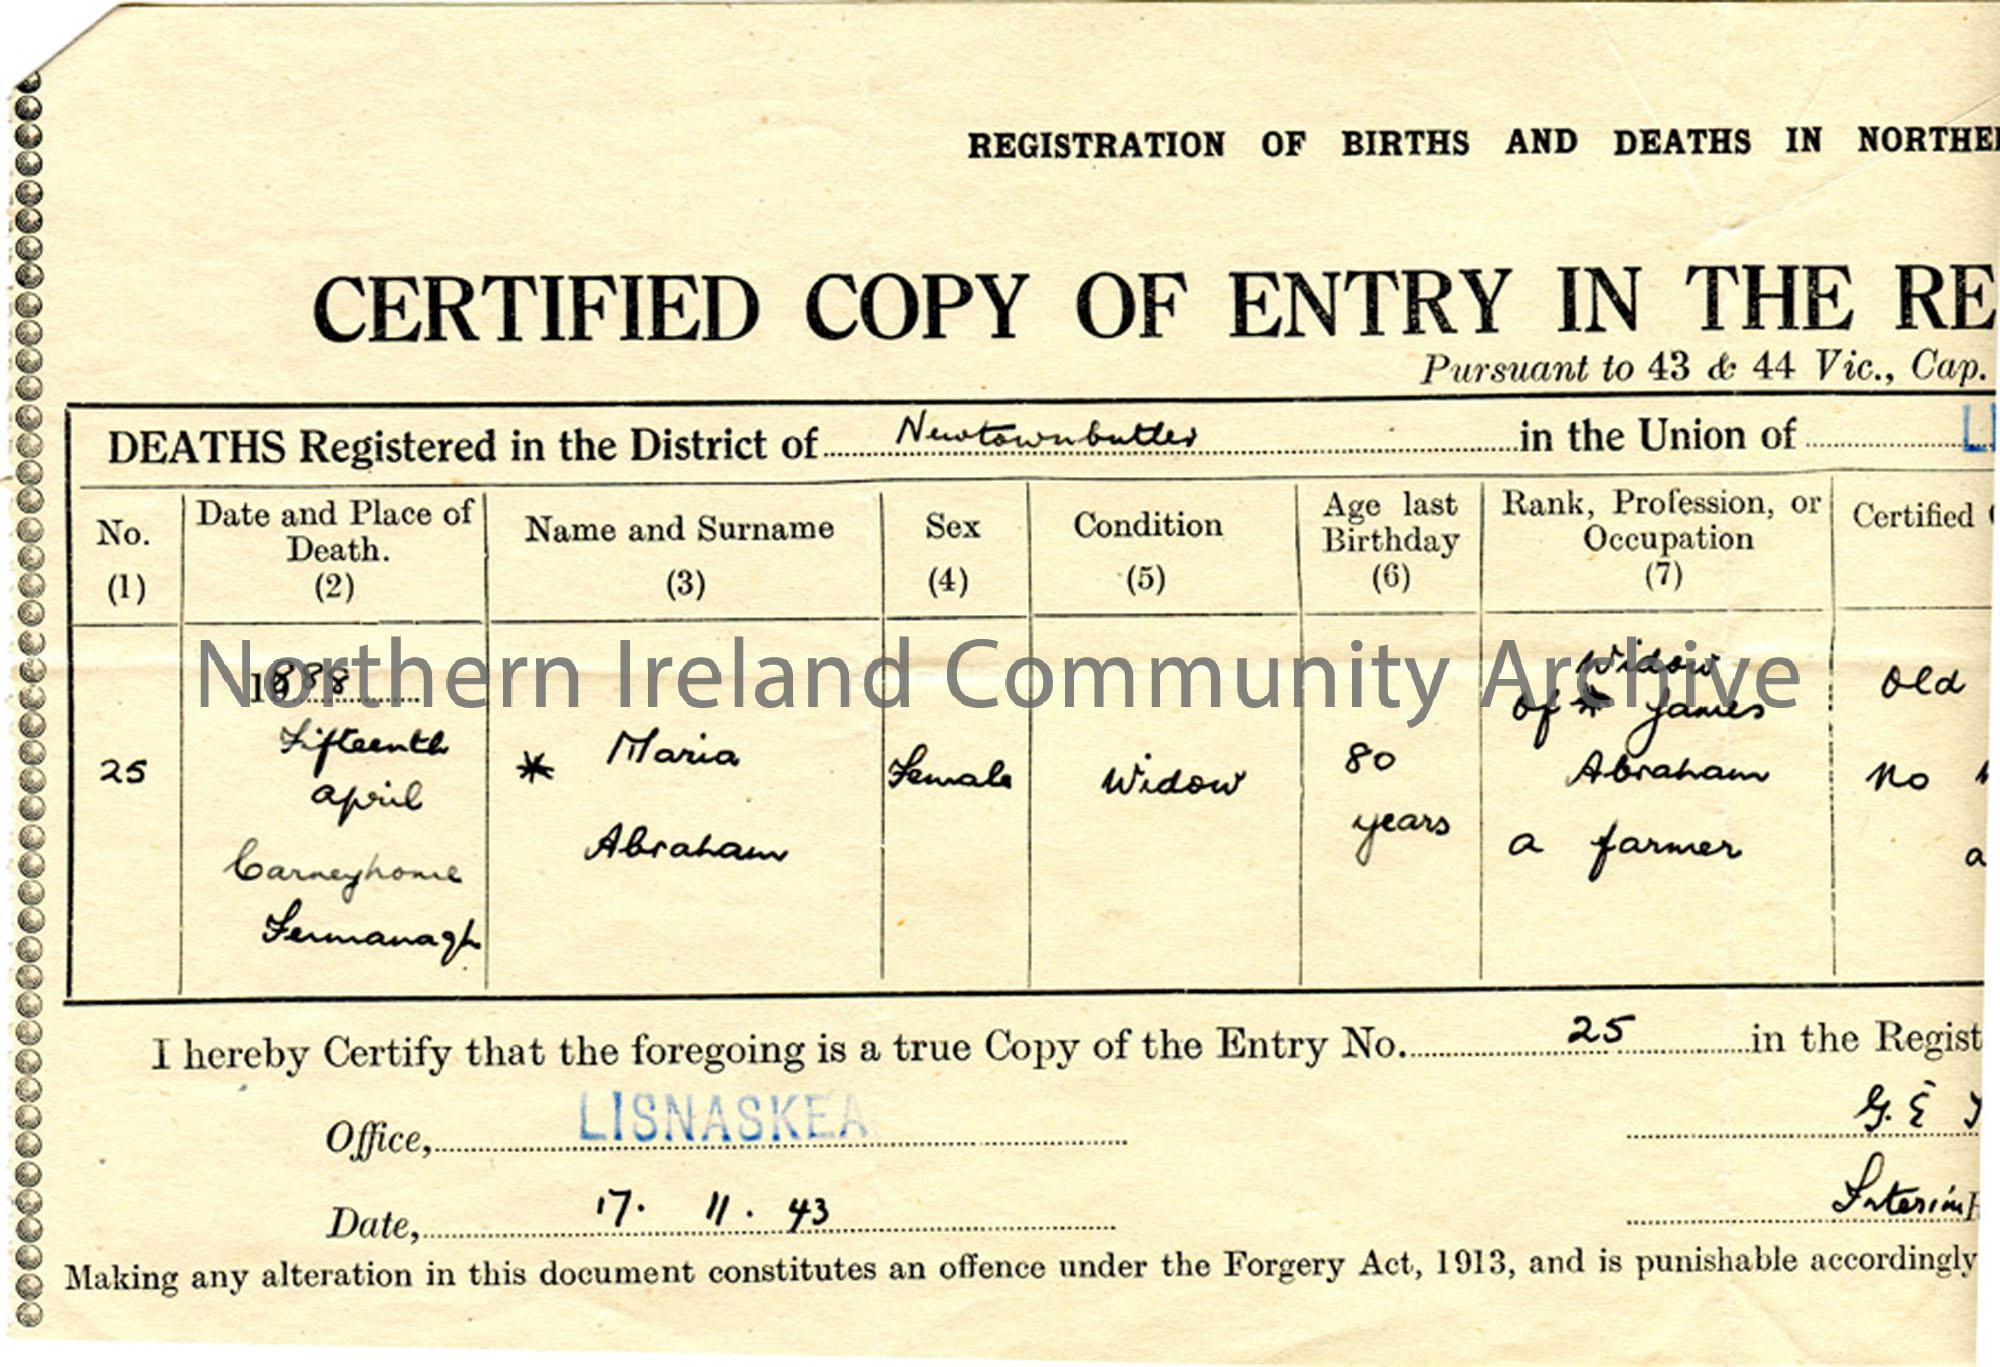 REGISTRATION OF BIRTHS AND DEATHS IN NORTHE
CERTIFIED COPY OF ENTRY IN THE RE
Pursuant to 43 & 44 Vic., Cap.
DEATHS Registered in the District of Newtownbutler in the Union of LI
No. (1)
Date and Place of Death. (2)
Name and Surname (3)
Sex (4)
Condition (5)
Age last Birthday (6)
Rank, Profession, or Occupation (7)
Certified
25
1888
Fifteenth
April
Carneyhome
Fermanagh
* Maria
Abraham
Female
Widow
80
years
Widow
of James
Abraham
a farmer
Old
No
a
Northern Ireland Community Archive
I hereby Certify that the foregoing is a true Copy of the Entry No. 25 in the Regist
Office, LISNASKEA
G. E
Date, 17. 11. 43
Interim
Making any alteration in this document constitutes an offence under the Forgery Act, 1913, and is punishable accordingly